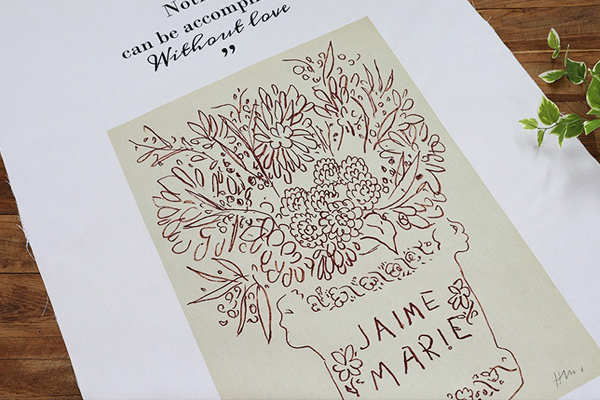 can be accomp
Without love
”
JAIME
MARIE